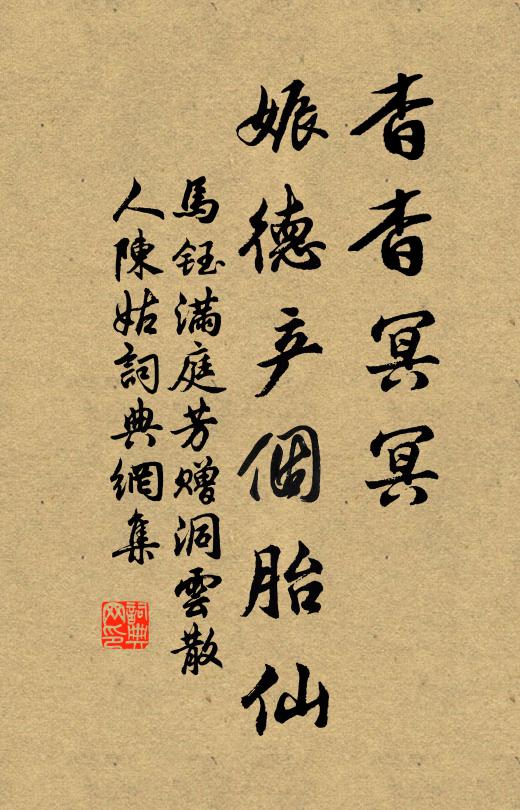 杳杳冥冥
娠德产個胎仙
馬鈺滿庭芳赠洞雲散
人陳姑詞典網集
詞典
网印